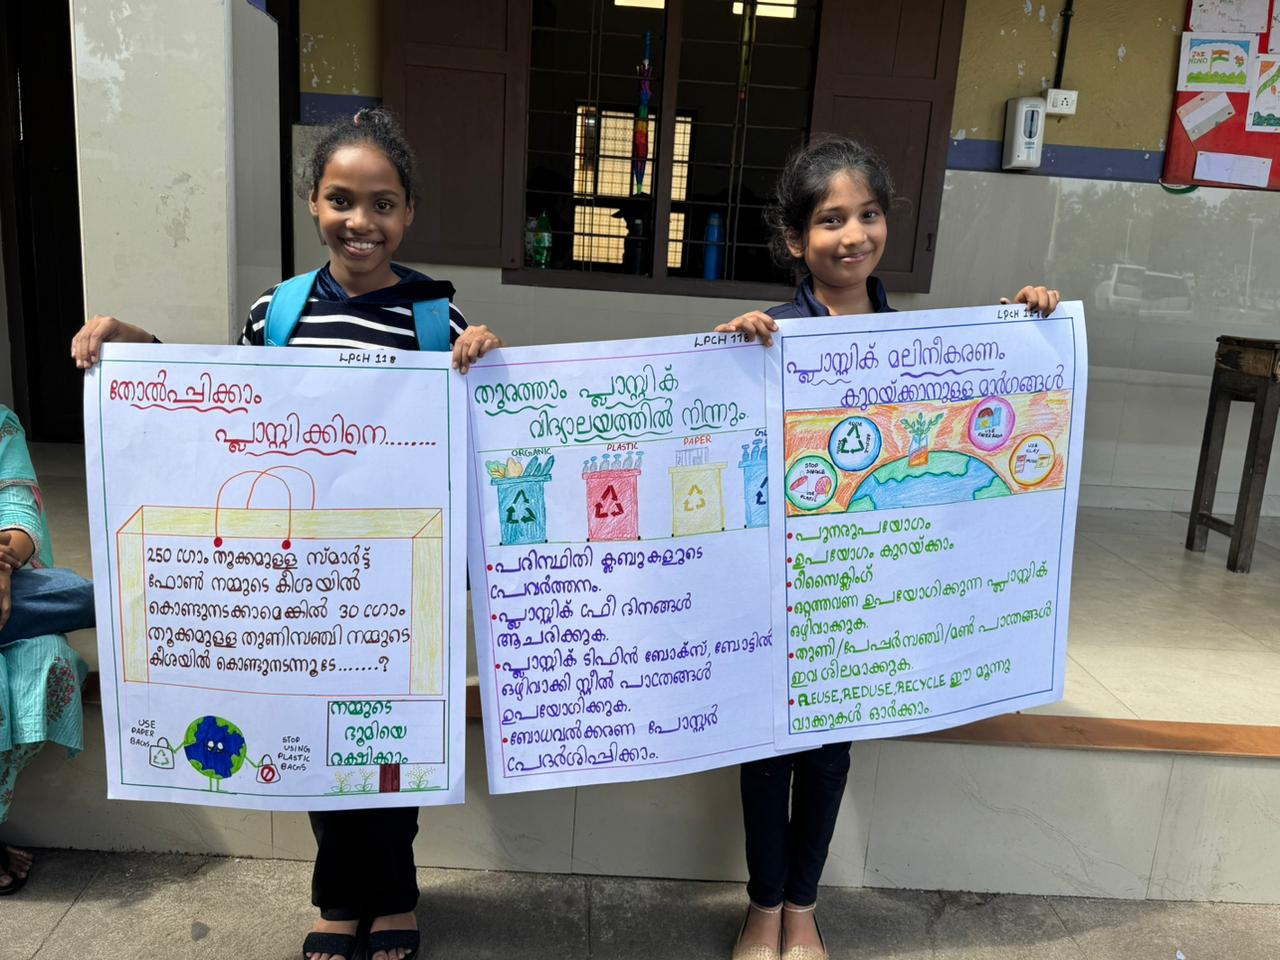 LPCH 118
തോൽപ്പിക്കാം
പ്ലാസ്റ്റിക്കിനെ........
250 ഗ്രാം തൂക്കമുള്ള സ്മാർട്ട്
ഫോൺ നമ്മുടെ കീശയിൽ
കൊണ്ടുനടക്കാമെങ്കിൽ 30 ഗ്രാം
തൂക്കമുള്ള തുണിസഞ്ചി നമ്മുടെ
കീശയിൽ കൊണ്ടുനടന്നൂടേ.......?
USE
PAPER
BAGS
STOP
USING
PLASTIC
BAGS
നമ്മുടെ
ഭൂമിയെ
രക്ഷിക്കാം
LPCH 118
തുരത്താം പ്ലാസ്റ്റിക്
വിദ്യാലയത്തിൽ നിന്നും.
ORGANIC
PLASTIC
PAPER
• പരിസ്ഥിതി ക്ലബുകളുടെ
പ്രവർത്തനം.
• പ്ലാസ്റ്റിക് ഫ്രീ ദിനങ്ങൾ
ആചരിക്കുക.
• പ്ലാസ്റ്റിക് ടിഫിൻ ബോക്സ്, ബോട്ടിൽ
ഒഴിവാക്കി സ്റ്റീൽ പാത്രങ്ങൾ
ഉപയോഗിക്കുക.
• ബോധവൽക്കരണ പോസ്റ്റർ
പ്രദർശിപ്പിക്കാം.
LPCH
പ്ലാസ്റ്റിക് മലിനീകരണം
കുറയ്ക്കാനുള്ള മാർഗങ്ങൾ
STOP SINGLE
USE
PLASTIC
USE
USE
CLAY
• പുനരുപയോഗം
• ഉപയോഗം കുറയ്ക്കാം
• റീസൈക്ലിംഗ്
• ഒറ്റത്തവണ ഉപയോഗിക്കുന്ന പ്ലാസ്റ്റിക്
ഒഴിവാക്കുക.
• തുണി/പേപ്പർസഞ്ചി/മൺ പാത്രങ്ങൾ
ഇവ ശീലമാക്കുക.
• REUSE, REDUSE, RECYCLE ഈ മൂന്നു
വാക്കുകൾ ഓർക്കാം.
JAI
HIND